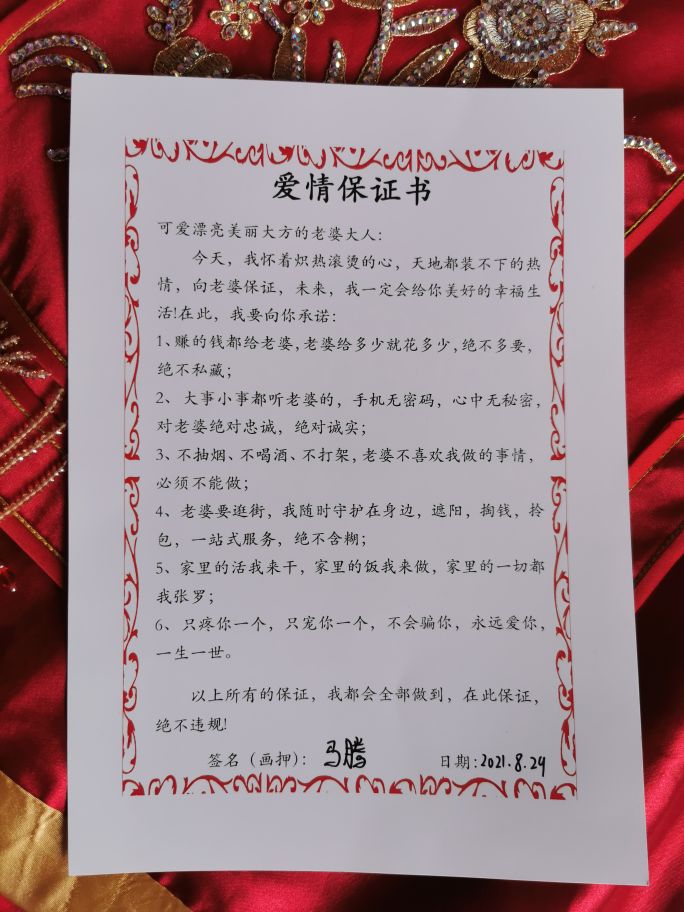 爱情保证书
可爱漂亮美丽大方的老婆大人：
今天，我怀着炽热滚烫的心，天地都装不下的热
情，向老婆保证，未来，我一定会给你美好的幸福生
活!在此，我要向你承诺：
1、赚的钱都给老婆，老婆给多少就花多少，绝不多要，
绝不私藏；
2、大事小事都听老婆的，手机无密码，心中无秘密，
对老婆绝对忠诚，绝对诚实；
3、不抽烟、不喝酒、不打架，老婆不喜欢我做的事情，
必须不能做；
4、老婆要逛街，我随时守护在身边，遮阳，掏钱，拎
包，一站式服务，绝不含糊；
5、家里的活我来干，家里的饭我来做，家里的一切都
我张罗；
6、只疼你一个，只宠你一个，不会骗你，永远爱你，
一生一世。
以上所有的保证，我都会全部做到，在此保证，
绝不违规!
签名（画押）：马腾 日期:2021.8.29